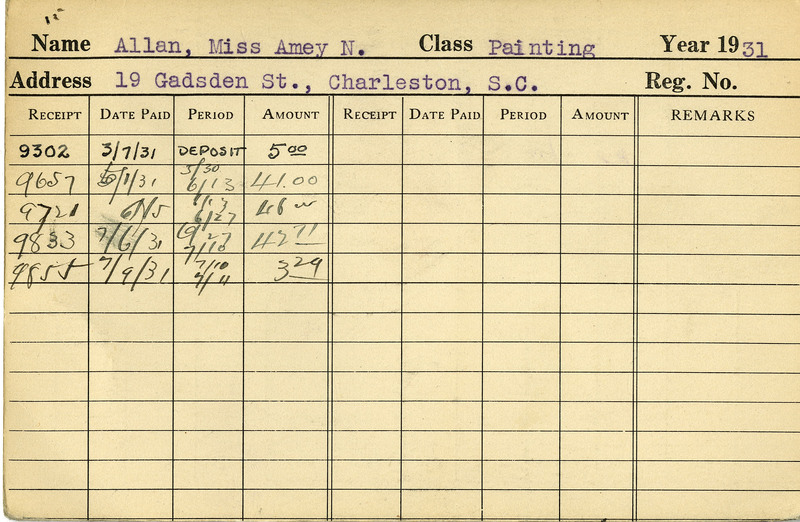 Name Allan, Miss Amey N. Class Painting Year 1931
Address 19 Gadsden St., Charleston, S.C. Reg. No.
RECEIPT DATE PAID PERIOD AMOUNT RECEIPT DATE PAID PERIOD AMOUNT REMARKS
9302 3/7/31 DEPOSIT 5 00
5/30
9657 6/1/31 6/13 41.00
6/13
9721 6/15 6/27 46
6/27
9833 7/6/31 7/10 42 71
7/10
9855 7/9/31 7/11 3 29